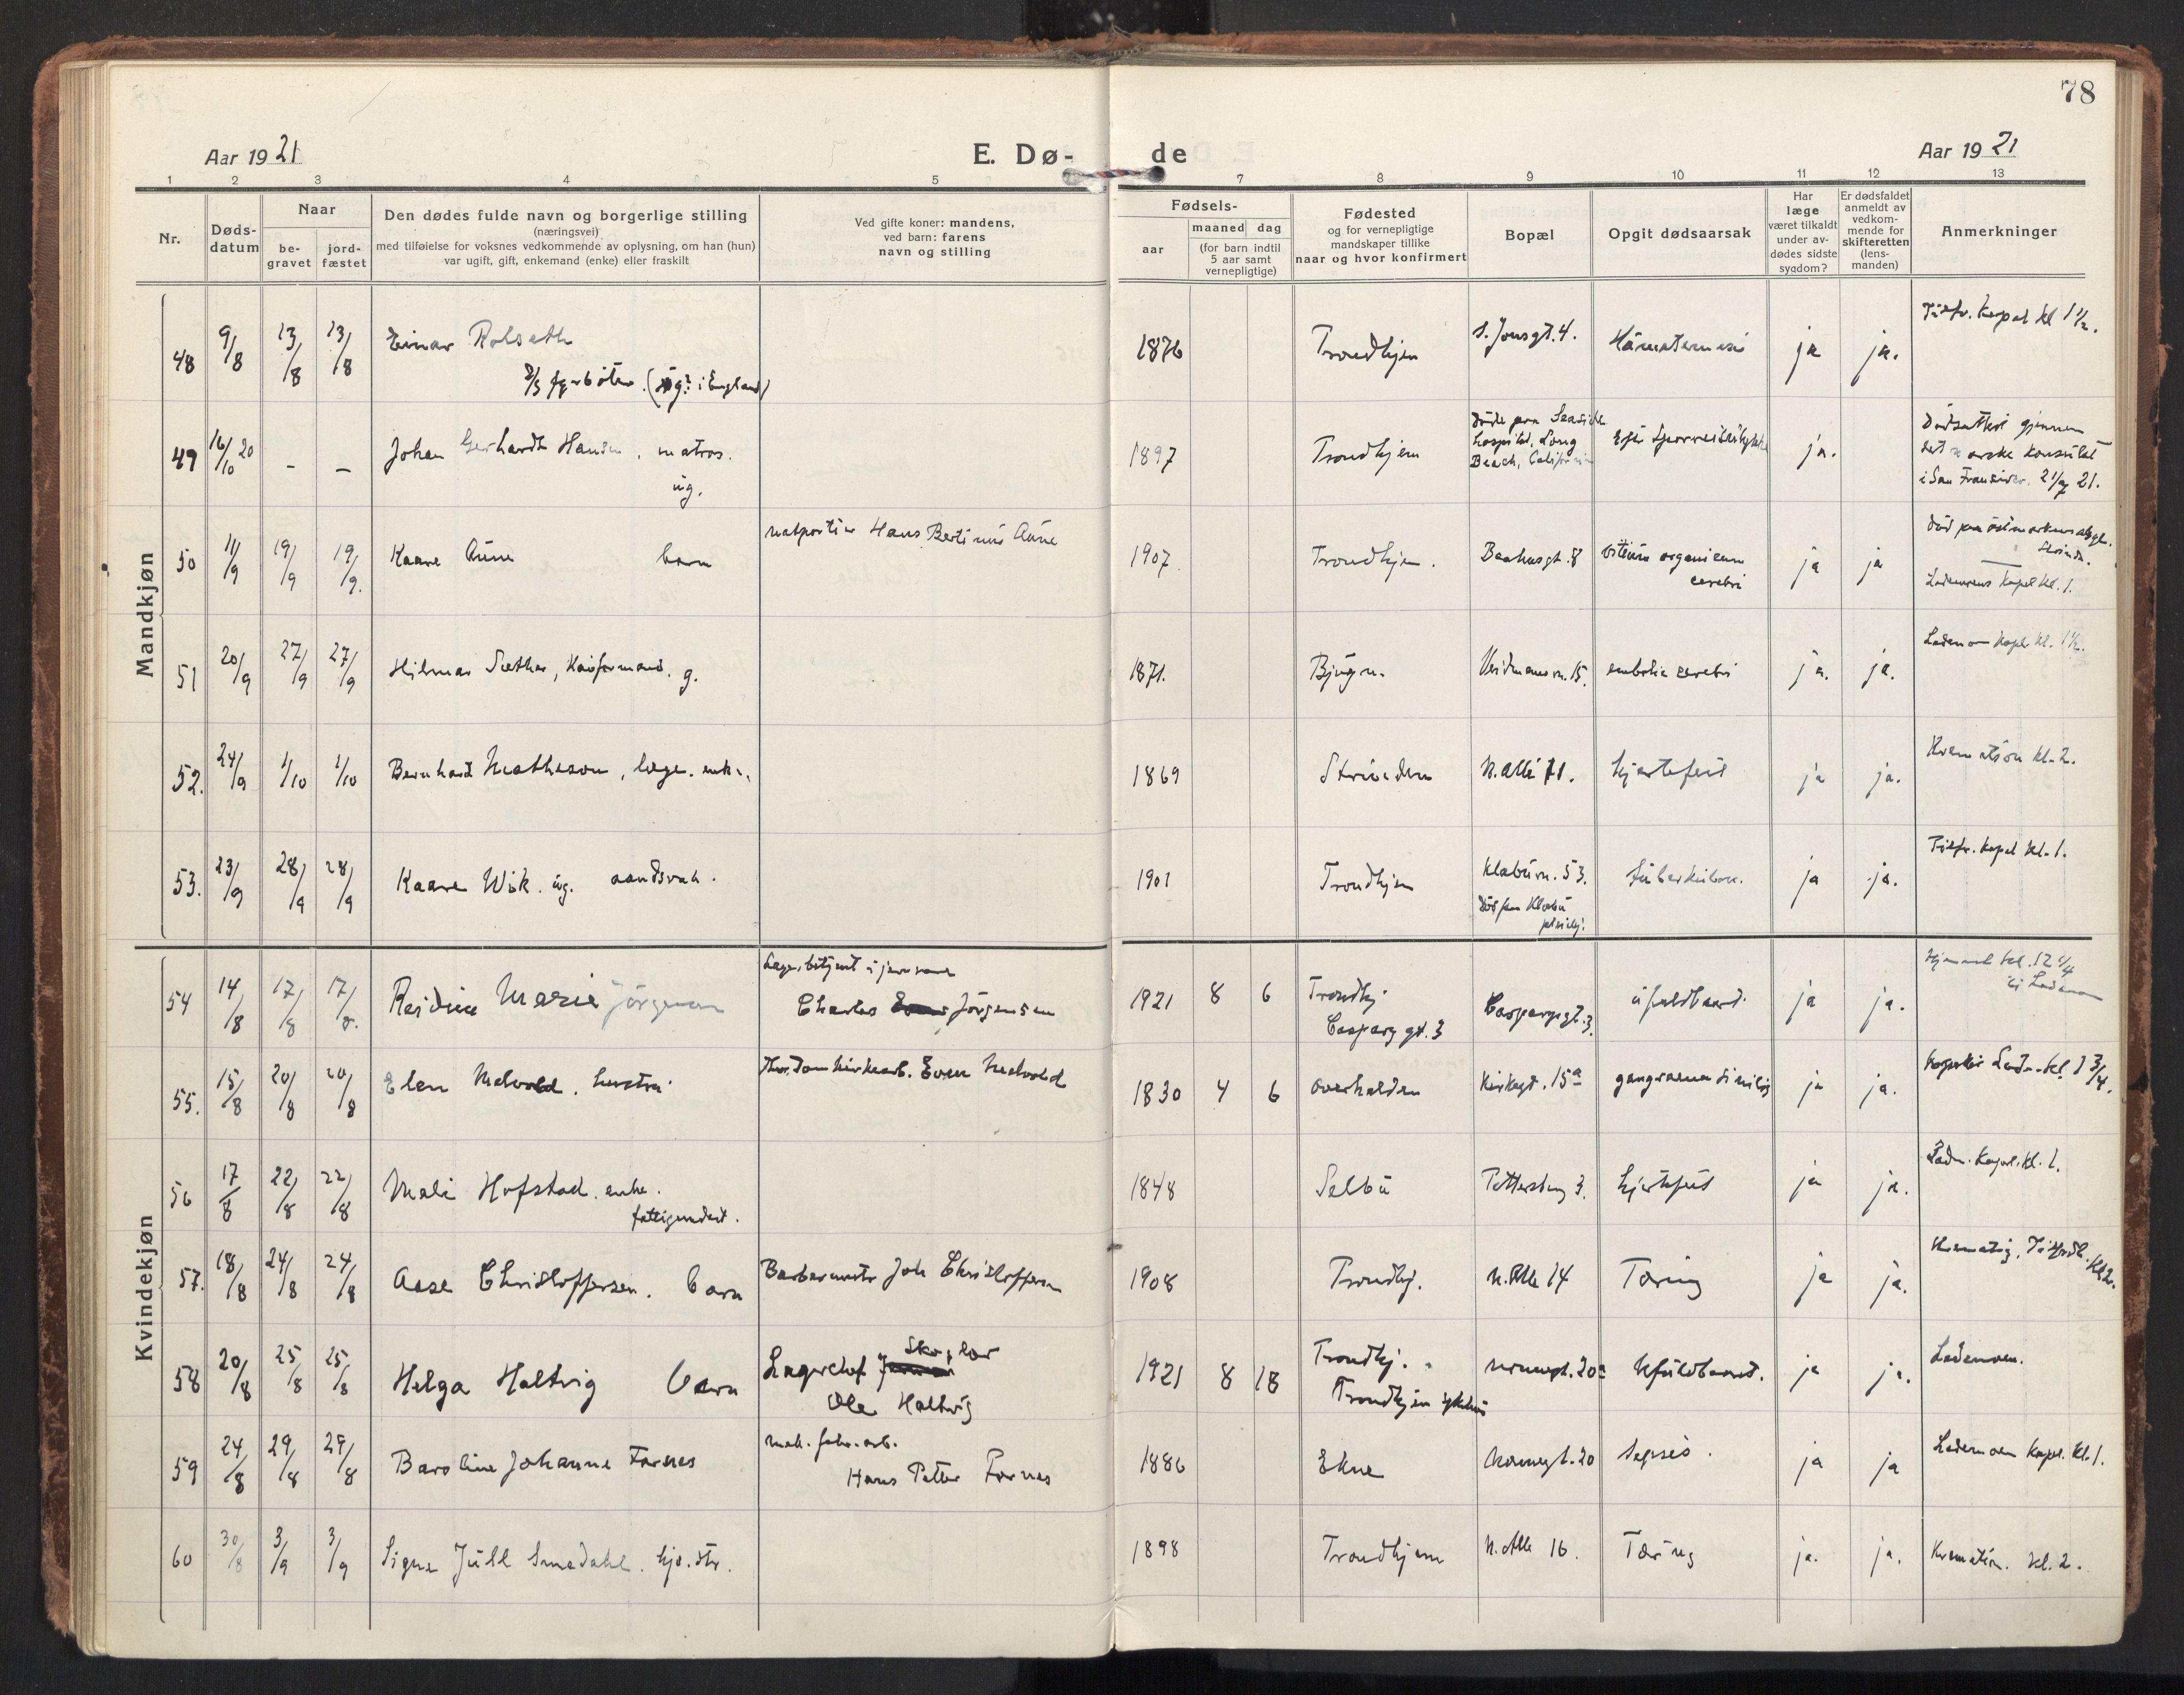 78
Aar 1921
E. Dø-
de
Aar 1921
1 2 3 4 5 7 8 9 10 11 12 13
Nr.
Døds-
datum
Naar
be-
gravet
jord-
fæstet
Den dødes fulde navn og borgerlige stilling
(næringsvei)
med tilføielse for voksnes vedkommende av oplysning, om han (hun)
var ugift, gift, enkemand (enke) eller fraskilt
Ved gifte koner: mandens,
ved barn: farens
navn og stilling
Fødsels-
aar
maaned dag
(for barn indtil
5 aar samt
vernepligtige)
Fødested
og for vernepligtige
mandskaper tillike
naar og hvor konfirmert
Bopæl
Opgit dødsaarsak
Har
læge
været tilkaldt
under av-
dødes sidste
sygdom?
Er dødsfaldet
anmeldt av
vedkom-
mende for
skifteretten
(lens-
manden)
Anmerkninger
Mandkjøn
48 9/8 13/8 13/8 Einar Rolseth
fyrbøter. (ug? i England)
1876 Trondhjem s. Jonsgt. 4. ja ja.
Kapel kl 1 1/2.
49 16/10 20 - - Johan Gerhardt Hansen, matros.
ug.
1897 Trondhjem
Døde paa Seaside
hospital, Long
Beach, California
ja.
Dødsattest gjennem
det norske konsulat
i San Francisco. 21/7 21.
50 11/9 19/9 19/9. Kaare Aune barn
Hans Bertinius Aune
1907. Trondhjem. Baahusgt. 8 vitium organicum
cerebri
ja ja
Lademoens Kapel kl. 1.
51 20/9 27/9 27/9 Hilmar Sæther, Kaiformand. g.
1871. Bjugn. 15. embolia cerebri ja. ja.
Ladem. Kapel kl. 1 1/2.
52. 24/9 1/10 1/10 Bernhard Matheson, læge. enkem.
1869 Strinden N. Allé 71. hjertefeil ja ja.
Kremation kl. 2.
53. 23/9 28/9 28/9 Kaare Wik. ug. aandsvak.
1901 Trondhjem Klæbuv. 53. tuberkulose. ja ja.
Død paa Klæbu
pleiehj.
Kapel kl. 1.
Kvindekjøn
54 14/8 17/8 17/8. Reidun Marie Jörgensen
Lagerbetjent i jernvare
Charles Jörgensen
1921 8 6 Trondhj.
Casparygt. 3
Casparysgt. 3. ufuldbaard. ja ja.
Hjemmet kl. 12 1/4
til Lademoen
55. 15/8 20/8 20/8 Elen Melvold. hustru
Domkirkearb. Even Melvold
1830 4 6 Overhalden Kirkegt. 15a gangraena senilis ja ja.
kl 1 3/4.
56 17/8 22/8 22/8 Mali Hofstad. enke.
fattigunderst.
1848 Selbu 3. hjertefeil ja ja.
Ladm. Kapel. kl. 1.
57. 18/8 24/8 24/8 Aase Christoffersen. barn
Barbermester Joh Christoffersen
1908 Trondhj. N. Alle 14 Tæring ja ja.
kl 2.
58 20/8 25/8 25/8 Helga Holtvig barn
Lagerchef
Ole Holtvig
1921 8 18 Trondhj.
Trondhjem sykehus
Ufuldbaaret. ja ja.
Lademoen.
59 24/8 29/8 29/8 Caroline Johanne Fornes
mek. fabr. arb.
Hans Petter Fornes
1886 Ekne 20 Sepsis. ja ja
Lademoen Kapel. kl. 1.
60 30/8 3/9 3/9 Signe Juell Smedahl. hjv. dtr.
1898 Trondhjem N. Alle 16. Tæring ja. ja.
Kremation. kl. 2.